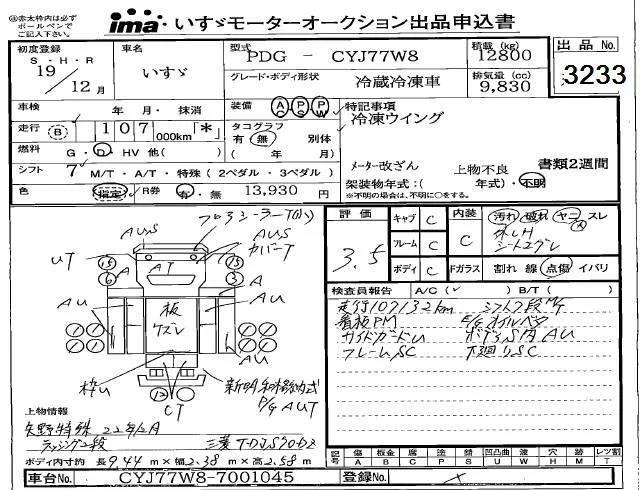 ④赤太枠内は必ず
ボールペンで
ご記入下さい。
ima いすゞモーターオークション出品申込書
初度登録
S・H・R
19
12月
車名
いすゞ
型式
PDG - CYJ77W8
積載 (kg)
12800
出品 No.
3233
グレード・ボディ形状
冷蔵冷凍車
排気量 (cc)
9,830
車検
年 月・ 抹消
装備 AC PS PW
特記事項
冷凍ウイング
走行 B 107 000km「*」
タコグラフ
有・無 別体
( 年 月)
燃料 G・D・HV 他( )
メーター改ざん 上物不良 書類2週間
シフト 7 M/T・A/T・特殊 (2ペダル・3ペダル)
架装物年式:( 年式)・不明
※不明の場合は、不明に○をする。
色 指定 R券 有・無 13,930 円
評価
3.5
キャブ C
フレーム C
ボディ C
内装
C
汚れ 破れ ヤニ スレ
Ｆガラス 割れ 線 点傷 イバリ
AUS
AUS
カバーT
UT
A
AT
A
AU
AU
板
AU
枠U
CT
P/G AUT
検査員報告 A/C( ) B/T( )
走行107132km シフト7段M/T
看板PM
サイドガードU ボデーS内AU
フレームSC 下廻りSC
上物情報
矢野特殊 22年12月
ラッシング2段 三菱TDJS70D2
ボディ内寸約 長9.44m×幅2.38m×高2.58m
記号 傷 板金 腐 塗 錆 凹 凸 曲 穴 跡 レツ割
A B C P S U W H M T
車台No. CYJ77W8-7001045
登録No.